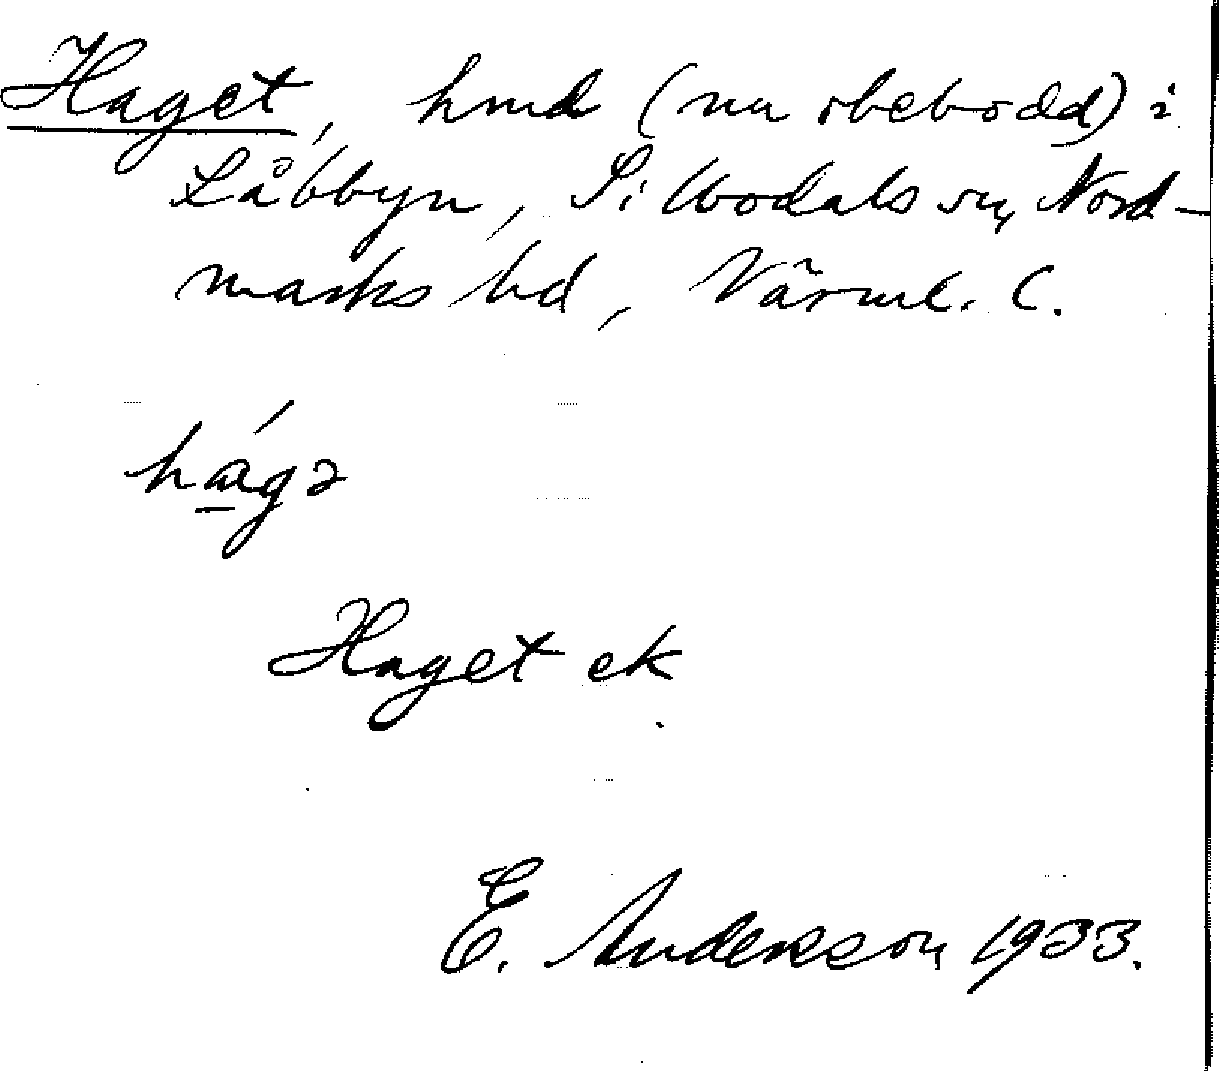 Haget, hmd (nu obebodd) i
Låbbyn, Sillbodals sn, Nord-
marks hd, Värml. l.
hágə
Haget ek
E. Anderson 1933.